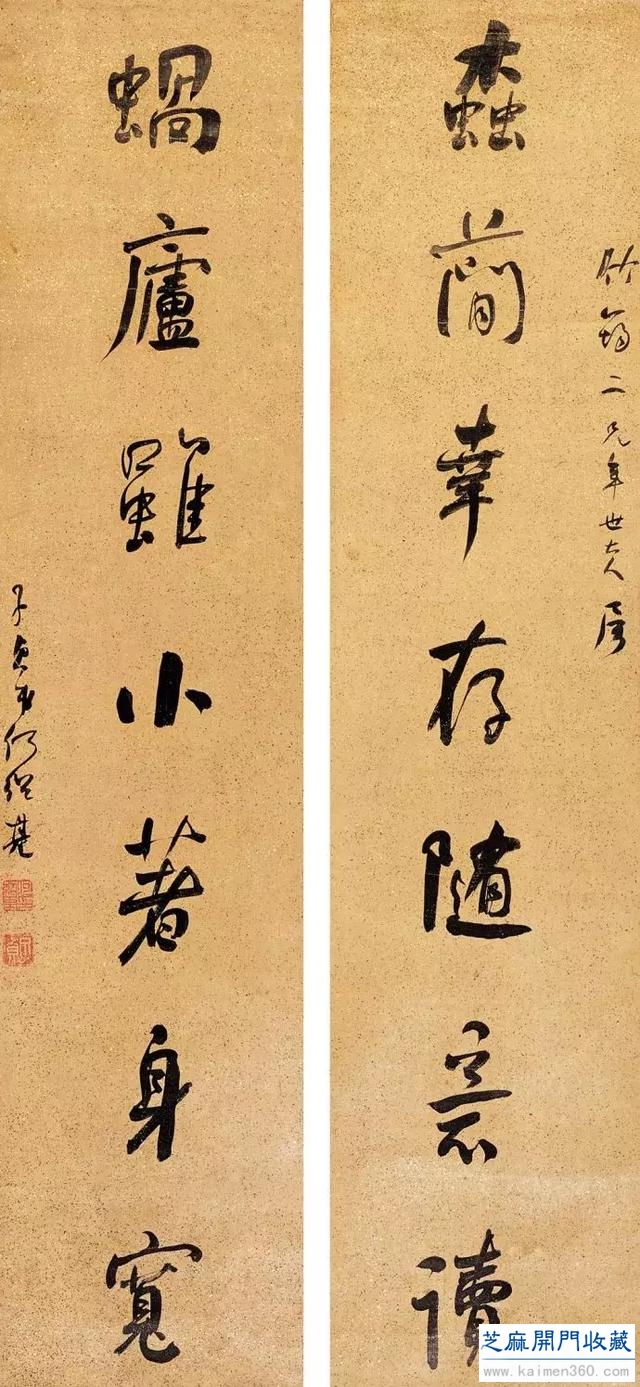 竹二兄年世大人属
螙簡幸存随意讀
蝸廬雖小著身寬
子貞弟何紹基
子貞
芝麻開門收藏
www.kaimen360.com